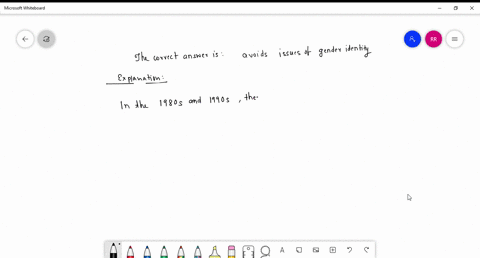 Microsoft Whiteboard
RR
The correct answer is: avoids issues of gender identity
Explanation:
In the 1980s and 1990s, the